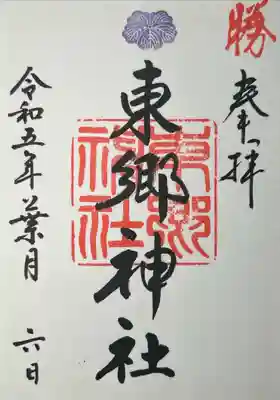 勝
奉拝
東郷神社
東郷神社
令和五年葉月 六日